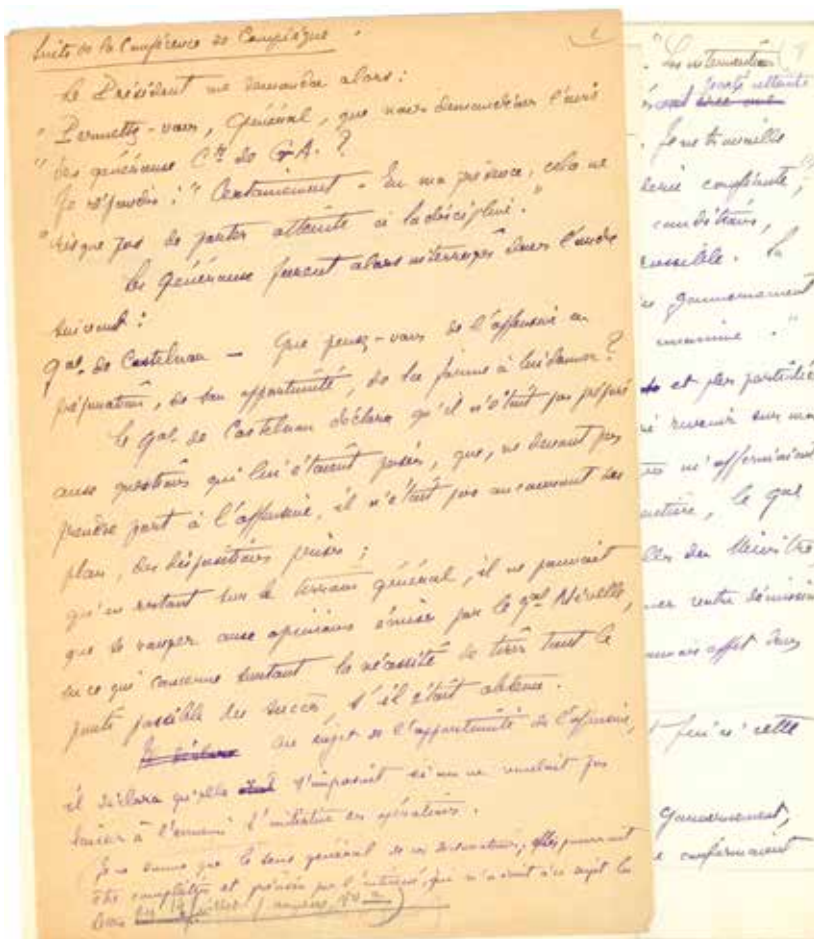 Suite de la Conférence de Compiègne.
Le Président me demanda alors :
" Permettez-vous, Général, que nous demandions l'avis
" des généraux Cts de GA. ?
Je répondis : " Certainement - En ma présence, cela ne
" risque pas de porter atteinte à la discipline."
Les Généraux furent alors interrogés dans l'ordre
suivant :
Gal. de Castelnau — Que pensez-vous de l'offensive en
préparation, de son opportunité, de la forme à lui donner ?
Le Gal. de Castelnau déclara qu'il n'était pas préparé
aux questions qui lui étaient posées, que, ne devant pas
prendre part à l'offensive, il n'était pas au courant des
plans, des dispositions prises ;
qu'en restant sur le terrain général, il ne pouvait
que se ranger aux opinions émises par le gal Nivelle,
en ce qui concerne surtout la nécessité de tirer tout le
parti possible du succès, s'il était obtenu.
Je déclare Au sujet de l'opportunité de l'offensive,
il déclara qu'elle s'imposait si on ne voulait pas
laisser à l'ennemi l'initiative des opérations.
Je ne donne que le sens général de ces déclarations ; elles pourront
être complétées et précisées par l'intéressé, qui m'a écrit à ce sujet les
" Les intervention
porté atteinte
Je ne travaille
confiante,
conditions,
possible. La
gouvernement
unanime . "
et plus particuliè
revenir sur ma
m'affermissant
le gal
du Ministre
votre démission
mauvais effet dans
cette
Gouvernement,
confirmaient